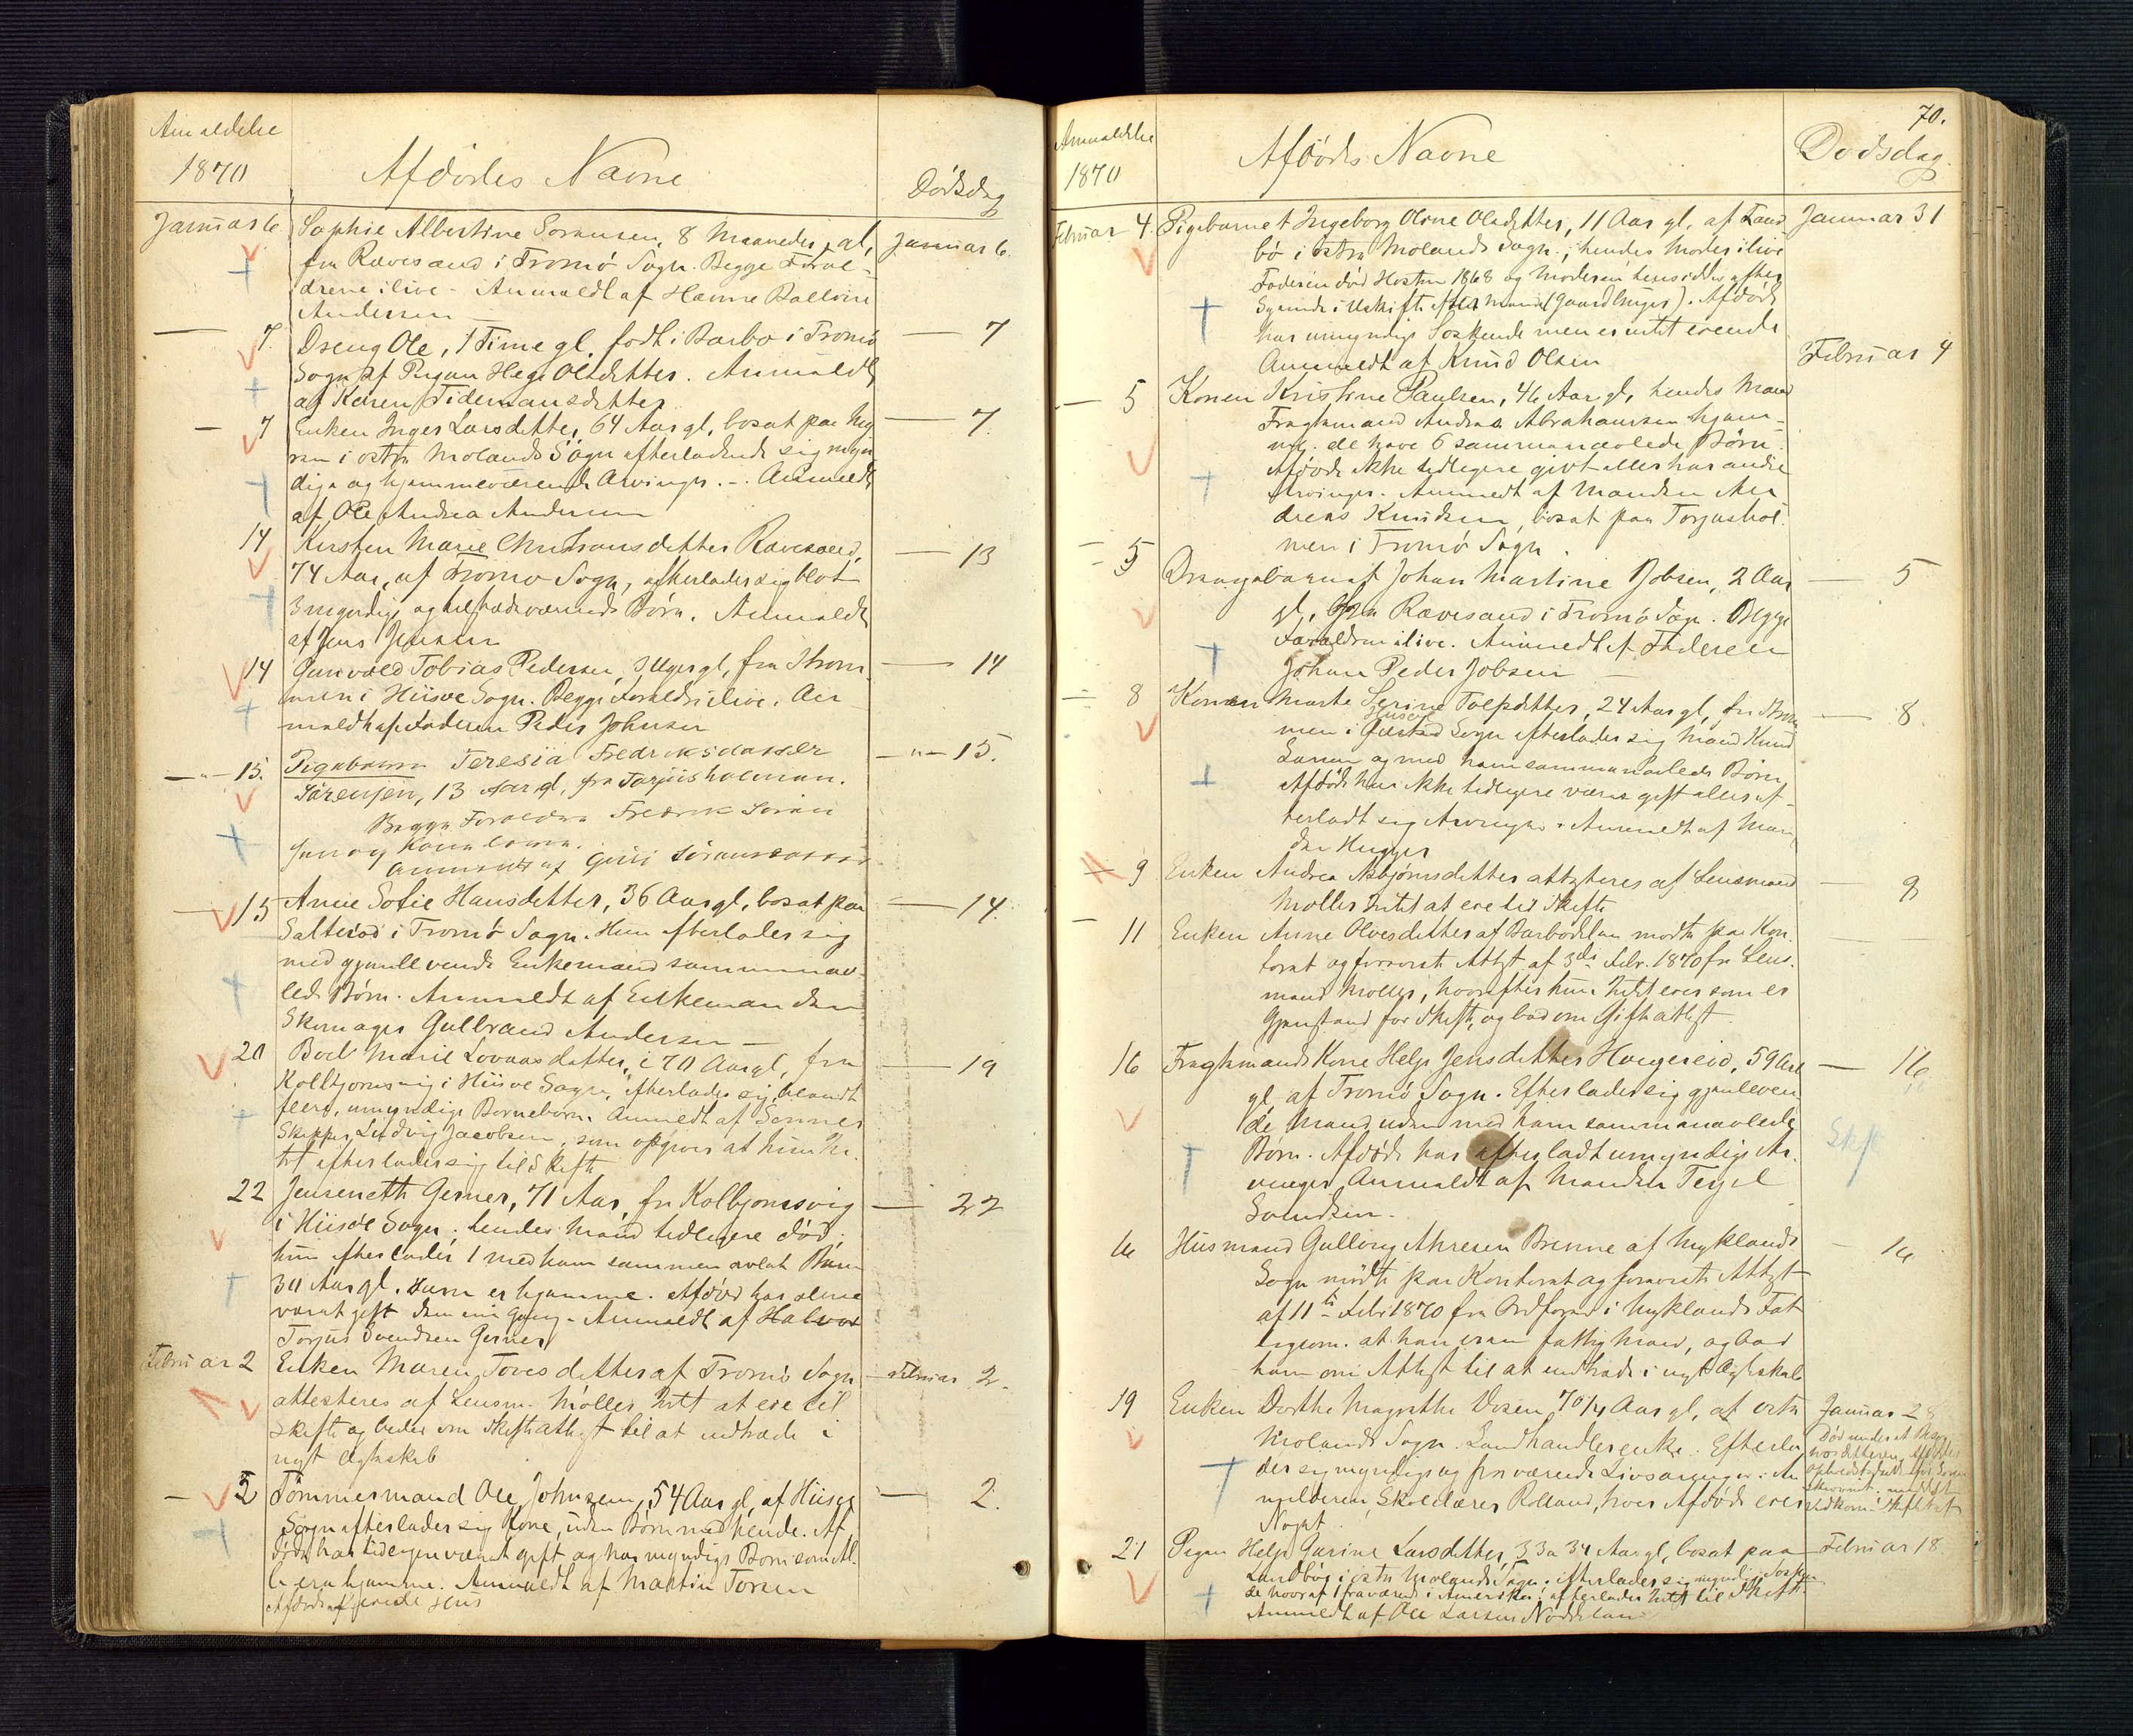 Anmeldelse
1870
Afdødes Navne
Dødsdag
Januar 6.
Sophie Albertine Sørensen, 8 Maaneder gl,
Januar 6.
fra Rævesand i Tromø Sogn. Begge Foræl-
drene ilive - Anmeldt af Hanne
Andersen
— 7.
Dreng Ole, 1 Time gl. født i Barbo i Tromø
— 7
Sogn af Pigen Hege Olsdatter. Anmeldt
af Karen Tidemansdatter
— 7
Enken Inger Larsdatter, 64 Aar gl, bosat paa
— 7.
i østre Molands Sogn efterladende sig myn
dige og hjemmeværende Arvinger. -. Anmeldt
af Ole Andrea Andersen
14
Kirsten Marie Christensdatter Rævesand,
— 13
74 Aar, af Tromø Sogn, efterlader sig blot
3 myndige og tilstedeværende Børn. Anmeldt
af Jens Jensen
14
Gunvald Tobias Pedersen, 3 Uger gl, fra Strøm
— 14
men i Hisøe Sogn. Begge Forældre ilive. An-
meldt af Faderen Peder Johnsen
—"— 15.
Pigebarn Teresia Fredriksdatter
—"— 15.
Sørensen, 13 Aar gl, fra Torjusholmen.
Begge Forældre Fredrik Søren
sen og Kone
Anmeldt af Guri Sørensdatter
— 15
Anne Sofie Hansdatter, 36 Aar gl, bosat paa
— 14.
Salterød i Tromø Sogn. Hun efterlader sig
med gjenlevende Enkemand sammenav-
lede Børn. Anmeldt af Enkemanden
Skomager Gulbrand Andersen —
20
Boel Marie Lovaasdatter, i 70 Aar gl, fra
— 19
Kolbjørnsvig i Hisøe Sogn, efterlader sig, blandt
flere, umyndige Børnebørn. Anmeldt af Sønnen
Skipper Ludvig Jacobsen, som opgiver at hun In-
tet efterlader sig til Skifte
22
Gerner, 71 Aar, fra Kolbjørnsvig
— 22
i Hisøe Sogn; hendes Mand tidligere død;
hun efterlader 1 med ham sammen avlet Barn
30 Aar gl. Ham er hjemme. Afdød har alene
været gift den ene Gang. - Anmeldt af Halvor
Torjus Svendsen Gerner
Februar 2
Enken Maren Toresdatter af Tromø Sogn
— Februar 2.
attesteres af Lensm. Møller Intet at eie til
Skifte og beder om Skifteattest til at indtræde i
nyt Ægteskab
— 2
Tømmermand Ole Johnsen, 54 Aar gl, af Hisøe
— 2.
Sogn efterlader sig Kone, uden Børn med hende. Af
døde har tidligere været gift og har myndige Børn som Al-
le ere hjemme. Anmeldt af Martin Torsen
70.
Anmeldelse
1870
Afdødes Navne
Dødsdag.
Februar 4.
Pigebarnet Ingeborg Oline Olsdatter, 11 Aar gl, af Land
Januar 31
bø i østre Molands Sogn.; hendes Moder ilive
Faderen død Høsten 1868 og Moderen hensidder efter
Sigende i Uskifte efter Mand (Gaardbruger). Afdøde
har umyndige Søskende men er intet eiende
Anmeldt af Knud Olsen
— 5
Konen Kristine Paulsen, 46 Aar gl, hendes Mand
Februar 4
Fragtemand Andreas Abrahamsen hjem-
me. de have 6 sammenavlede Børn
Afdøde ikke tidligere givt eller har andre
Arvinger. Anmeldt af Manden An-
dreas Knudsen, bosat paa Torjushol-
men i Tromø Sogn.
— 5
Drengebarnet Johan Martine Jobsen, 2 Aar
— 5
gl, fra Rævesand i Tromø Sogn. Begge
Forældrene ilive. Anmeldt af Faderen
Johan Peder Jobsen —
— 8
Konen Marte Serine Tolfsdatter, 24 Aar gl, fra Strøm
— 8.
men i Øiestad Sogn efterlader sig Mand Knud
Hisøe
Larsen og med ham sammenavlede Børn,
Afdøde har ikke tidligere været gift eller ef-
terladt sig Arvinger. Anmeldt af Man-
den Hugger
— 9
Enken Andrea Asbjørnsdatter attesteres af Lensmand
— 9
Møller Intet at eie til Skifte
— 11
Enken Anne Olvesdatter af Barbodalen mødte paa Kon-
toret og foreviste Attest af 3die Febr. 1870 fra Lens-
mand Møller, hvorefter hun Intet eier som er
Gjenstand for Skifte, og bad om Gifteattest
16
Fragtmands Kone Helje Jensdatter Haugereid, 59 Aar
— 16
gl, af Tromø Sogn. Efterlader sig gjenleven
de Mand uden med ham sammenavlede
Skf
Børn. Afdøde har efterladt umyndige Ar-
vinger, Anmeldt af Manden Terjel
Svendsen.
16
Husmand Gullov Ahresen Brenne af Myklands
— 16
Sogn mødte paa Kontoret og foreviste Attest
af 11te Febr 1870 fra Ordfører i Myklands Fat
tigcom. at han er en fattig Mand, og bad
ham om Attest til at indtræde i nyt Ægteskab
19
Enken Dorthe Magrethe Vosen 70 1/4 Aar gl, af østre
Januar 28
Molands Sogn. Landhandlerenke. Efterla-
der sig myndige og fraværende Livsarvinger. An
melderen Skolelærer Rolland, hvor Afdøde eier
Noget
21
Pigen Helje Gurine Larsdatter, 33 a 34 Aar gl, bosat paa
Februar 18.
Landbø i østre Molands Sogn; efterlader sig myndige Søsken
de hvoraf 1 fraværende i Amerika; efterlader Intet til Skifte
Anmeldt af Ole Larsen Nøddeland